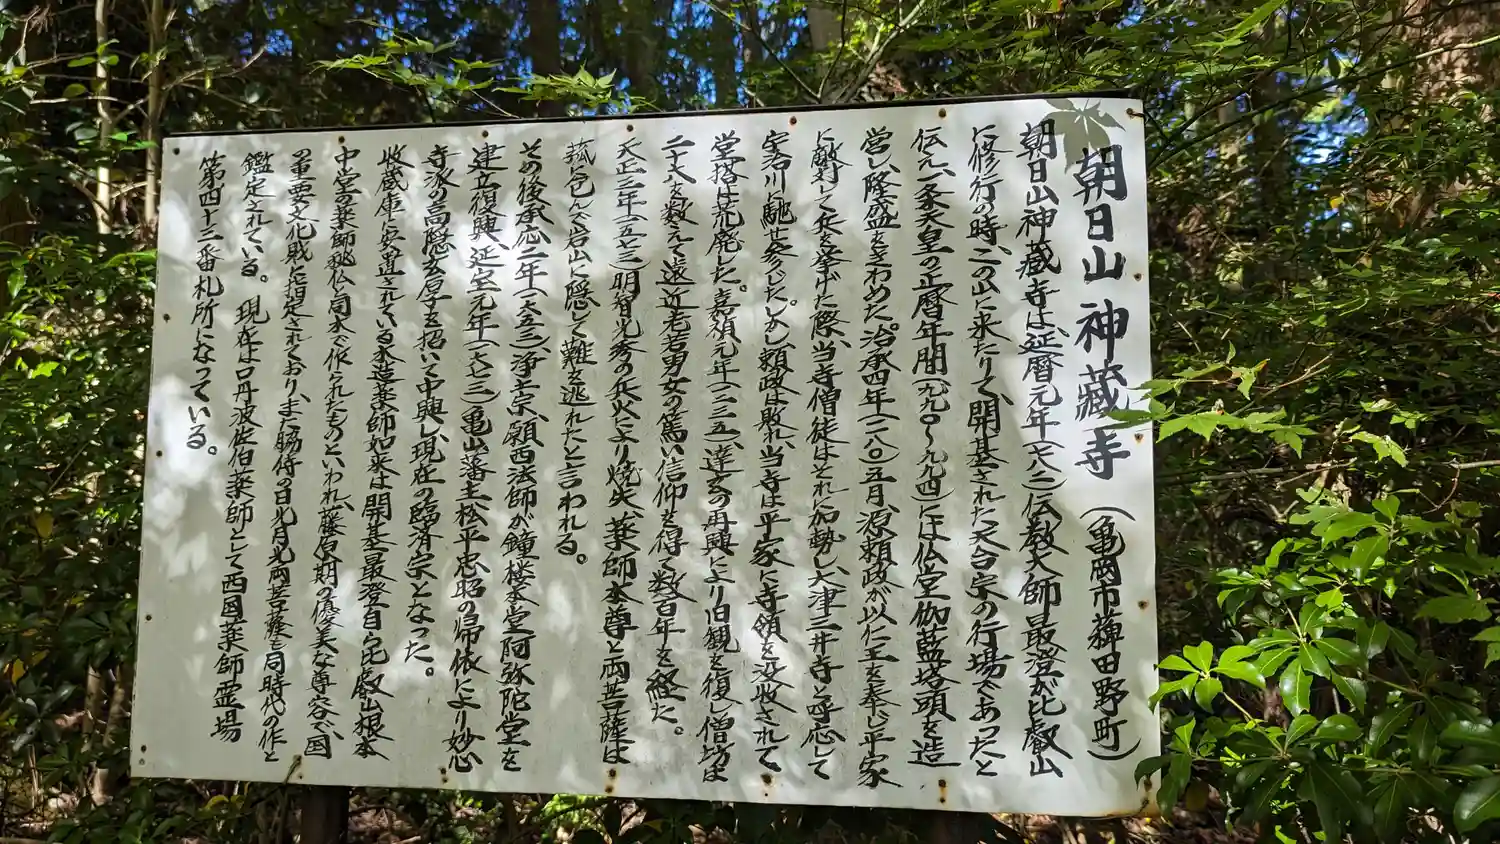 朝日山 神蔵寺 (亀岡市薭田野町)
朝日山神蔵寺は、延暦元年(七八二)伝教大師最澄が比叡山
に修行の時、この山に来たりて、開基された天台宗の行場であったと
伝え、一条天皇の正暦年間(九九〇〜九九四)には仏堂伽藍塔頭を造
営し隆盛をきわめた。治承四年(一一八〇)五月、源頼政が以仁王を奉じ平家
に敵対して兵を挙げた際、当寺僧徒はそれに加勢し、大津三井寺と呼応して
宇治川に馳せ参じた。しかし頼政は敗れ、当寺は平家に寺領を没収されて、
堂搭は荒廃した。嘉禎元年(一二三五)、達玄の再興により旧観を復し僧坊は
二十六を数えて遠近老若男女の篤い信仰を得て数百年を経た。
天正三年(一五七三)明智光秀の兵火により焼失、薬師本尊と両菩薩は
菰に包んで岩山に隠して難を逃れたと言われる。
その後承応二年(一六五三)浄土宗、願西法師が鐘楼本堂阿弥陀堂を
建立復興、延宝元年(一六七三)亀山藩主松平忠昭の帰依により妙心
寺派の高隠玄厚を招いて中興し現在の臨済宗となった。
収蔵庫に安置されている木造薬師如来は開基最澄自ら比叡山根本
中堂の薬師秘仏と同木で作られたものといわれ、藤原期の優美な尊容で、国
の重要文化財に指定されており、また脇侍の日光月光両菩薩も同時代の作と
鑑定されている。現在は口丹波佐伯薬師として西国薬師霊場
第四十三番札所になっている。